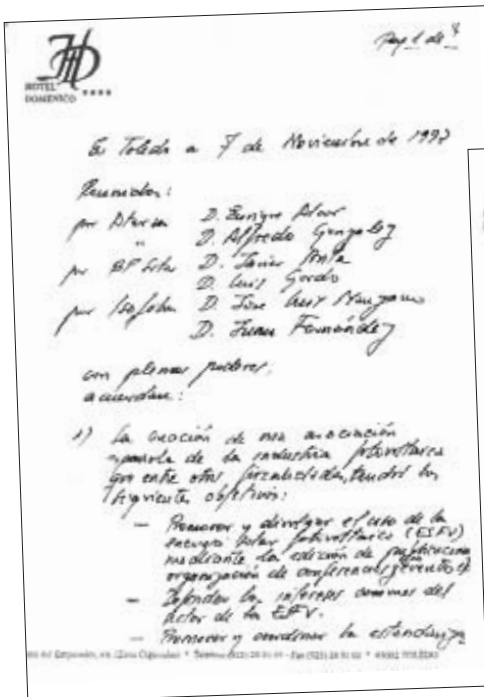 HD
HOTEL
DOMENICO ****
Pag 1 de 4
En Toledo a 7 de Noviembre de 1997
Reunidos:
por Atersa D. Enrique Alcor
" D. Alfredo Gonzalez
por BP Solar D. Javier Anta
D. Luis Gordo
por Isofoton D. Jose Luis Manzano
D. Juan Fernández
con plenos poderes,
acuerdan:
1) La creación de una asociación
española de la industria fotovoltaica
que entre otras finalidades, tendrá los
siguientes objetivos:
— Promover y divulgar el uso de la
energía solar fotovoltaica (ESFV)
mediante la edición de publicaciones
organización de conferencias, eventos
— Defender los intereses comunes del
sector de la ESFV.
— Promover y coordinar la estandariza